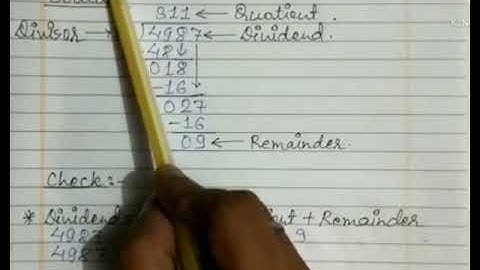 311 ← Quotient.
Divisor → 4987 ← Dividend.
-48↓
018
-16
027
-16
09 ← Remainder.
Check:-
* Dividend + Remainder
4987 9
4987